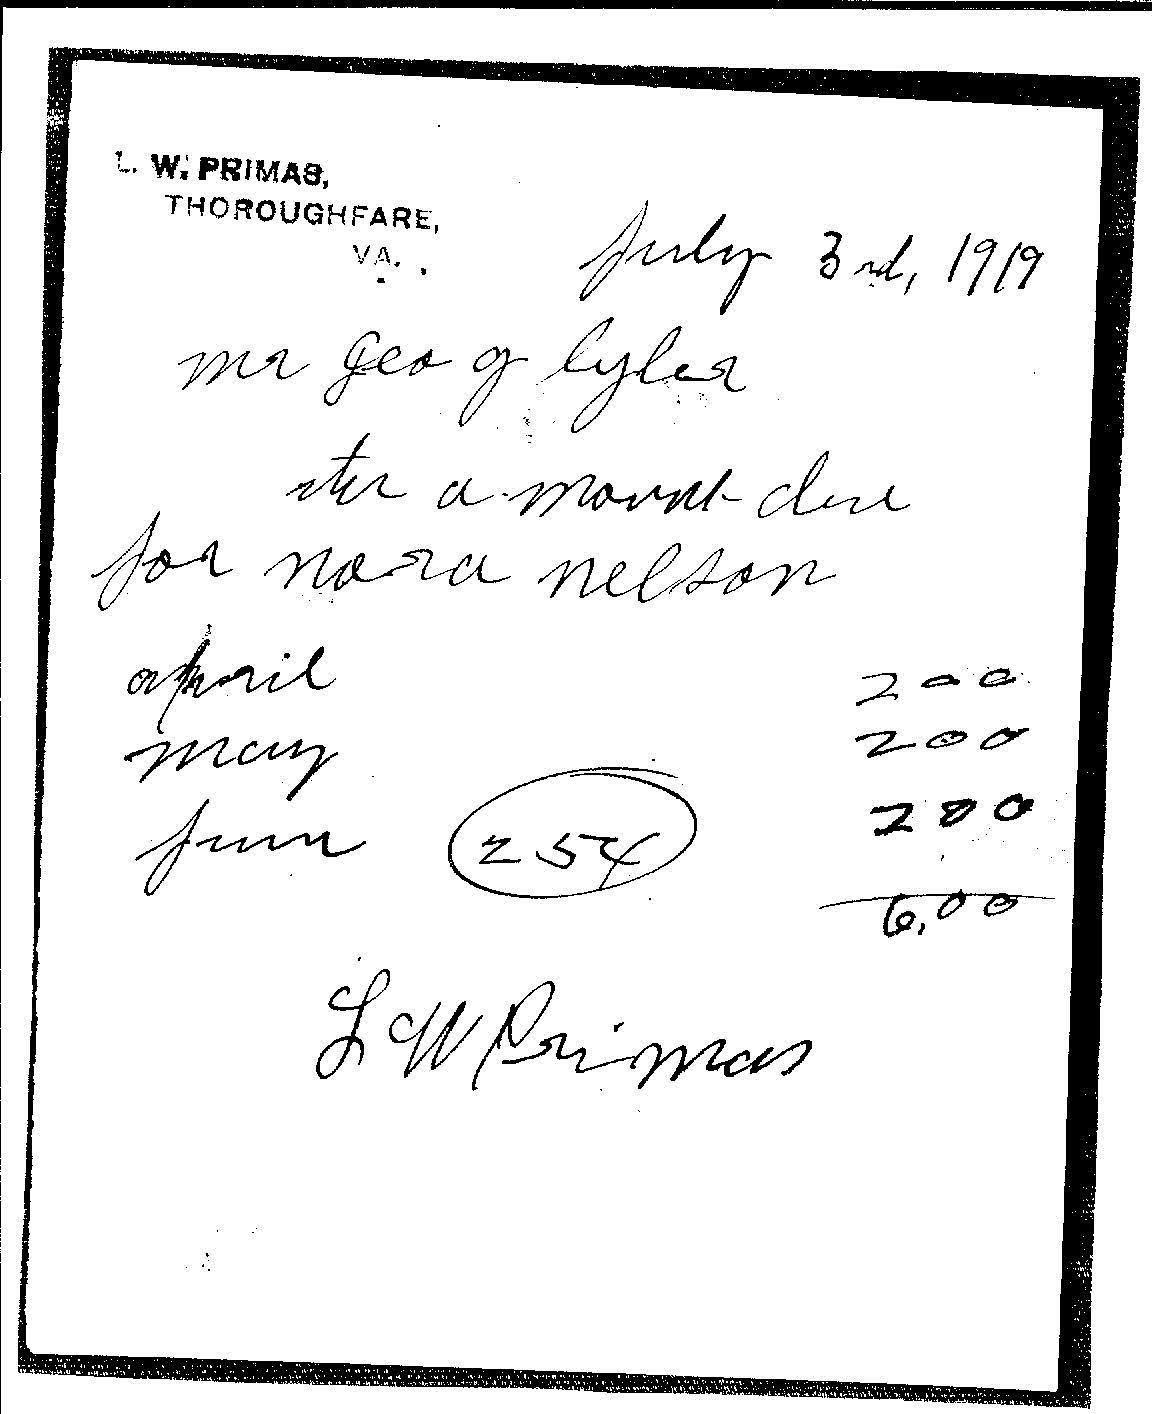 L. W. PRIMAS,
THOROUGHFARE,
VA.
July 3rd, 1919
mr Geo g Tyler
the a mount due
for nora nelson
april 200
may 200
June 200
254
6,00
L W Primas